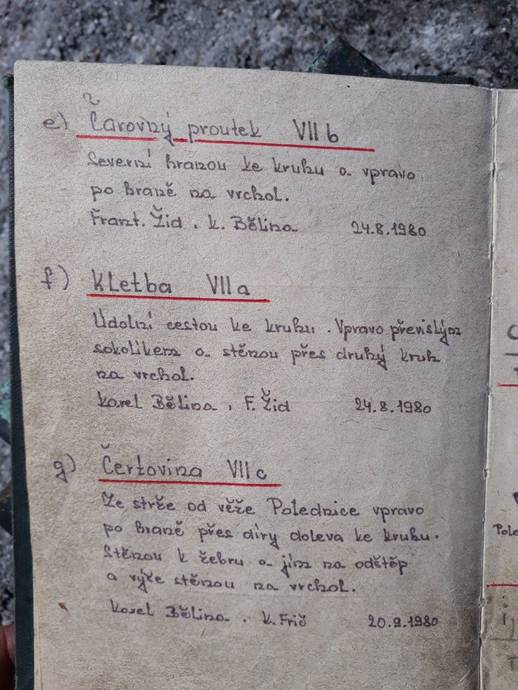 e) Čarovný proutek VII b
Severní hranou ke kruhu a vpravo
po hraně na vrchol.
Frant. Žid, K. Bělina 24.8.1980
f) Kletba VII a
Údolní cestou ke kruhu. Vpravo převislým
sokolíkem a stěnou přes druhý kruh
na vrchol.
Karel Bělina, F. Žid 24.8.1980
g) Čertovina VII c
Ze strže od věže Polednice vpravo
po hraně přes díry doleva ke kruhu.
Stěnou k žebru a jím na odštěp
a výše stěnou na vrchol.
Karel Bělina, K. Frič 20.9.1980